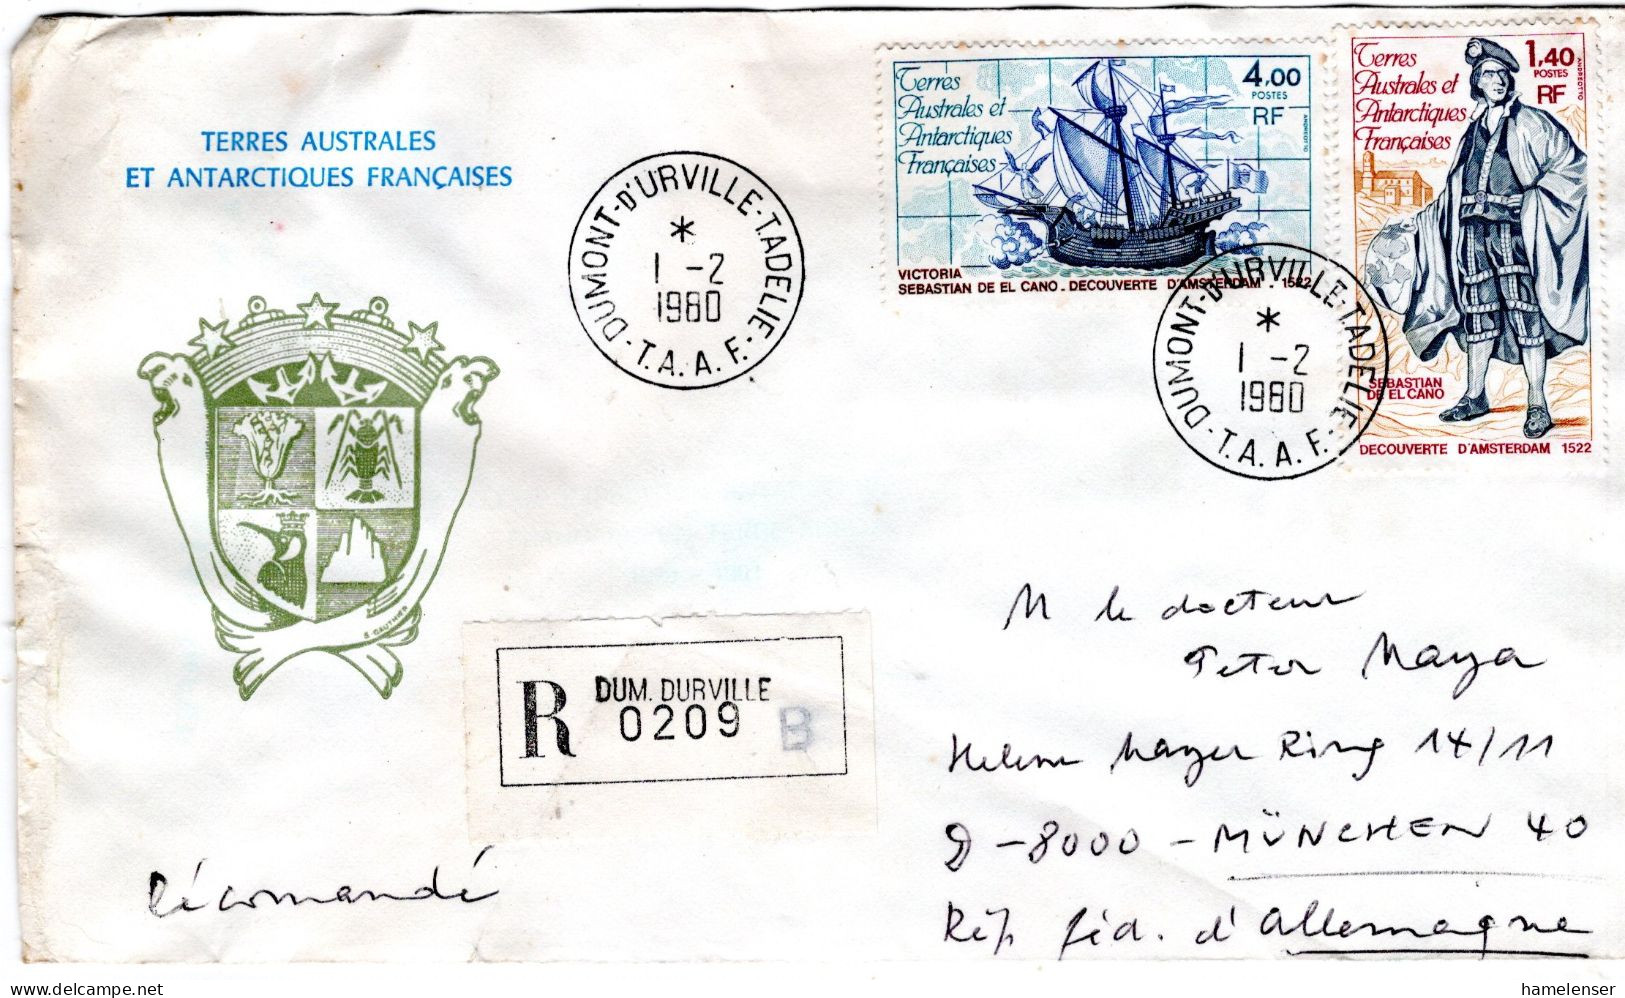 TERRES AUSTRALES
ET ANTARCTIQUES FRANÇAISES
B. GAUTHIER
DUMONT-D'URVILLE-T.ADELIE
*
1 -2
1980
-T.A.A.F.-
Terres
Australes et
Antarctiques
Françaises
4,00
POSTES
RF
ANDREOTTO
VICTORIA
SEBASTIAN DE EL CANO . DECOUVERTE D'AMSTERDAM . 1522
Terres
Australes et
Antarctiques
Françaises
1,40
POSTES
RF
ANDREOTTO
SEBASTIAN
DE EL CANO
DECOUVERTE D'AMSTERDAM 1522
DUMONT-D'URVILLE-T.ADELIE
*
1 -2
1980
-T.A.A.F.-
R DUM. DURVILLE
0209 B
Récommandé
M le docteur
Peter Maya
Helene Mayer Ring 14/11
D-8000 - MÜNCHEN 40
Rép. féd. d'Allemagne
delcampe.net
hamelenser